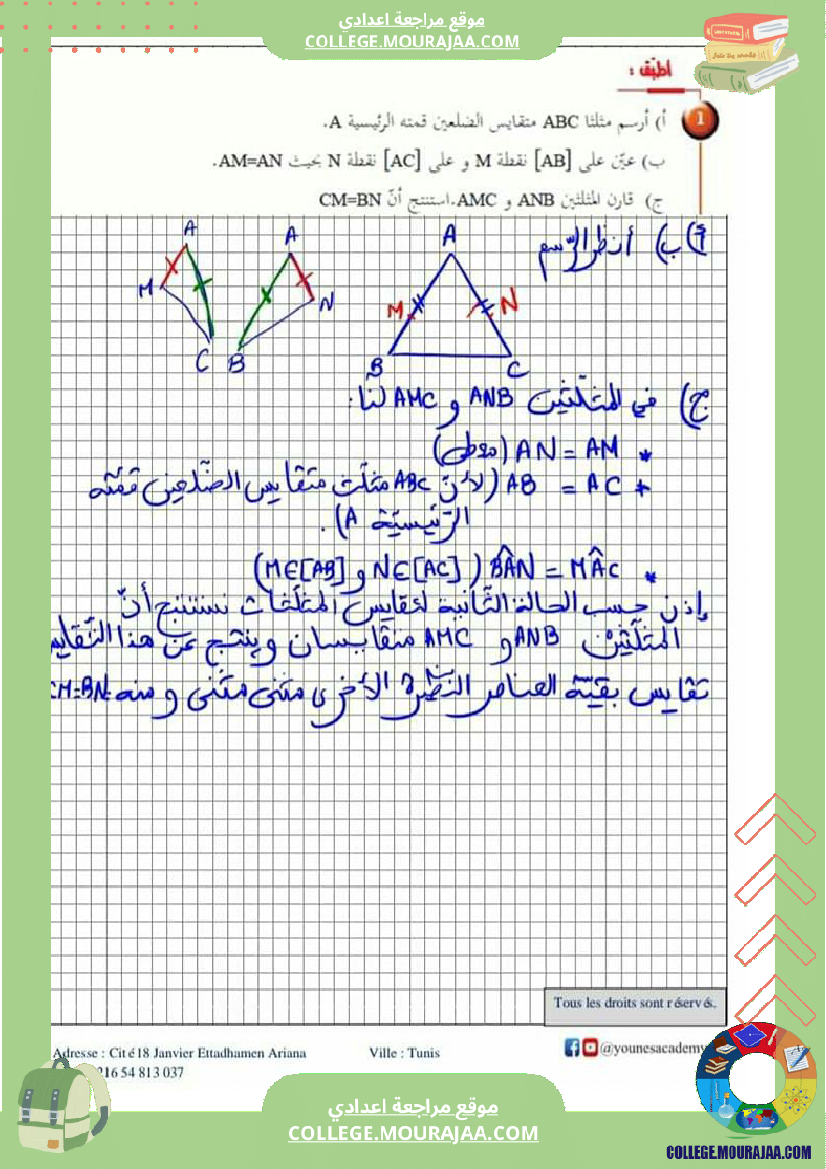 موقع مراجعة اعدادي
COLLEGE.MOURAJAA.COM
أطبّق :
1
أ) أرسم مثلثا ABC متقايس الضلعين قمته الرئيسية A.
ب) عيّن على [AB] نقطة M و على [AC] نقطة N بحيث AM=AN.
ج) قارن المثلثين ANB و AMC. استنتج أنّ CM=BN
أ) ب) أنظر الرّسم
A
M
C
A
N
B
A
M
N
B
C
ج) في المثلّثين ANB و AMC لنا:
* AN = AM (معطى)
* AB = AC (لأنّ ABC مثلّث متقايس الضّلعين قمّته
الرّئيسيّة A).
* BÂN = MÂC (M∈[AB] و N∈[AC])
إذن حسب الحالة الثّانية لتقايس المثلّثات نستنتج أنّ
المثلّثين ANB و AMC متقايسان وينتج عن هذا التّقايس
تقايس بقيّة العناصر النّظيرة الأخرى مثنى مثنى و منه CM=BN
Tous les droits sont réservés.
Adresse : Cité 18 Janvier Ettadhamen Ariana
Ville : Tunis
@younesacademy
216 54 813 037
موقع مراجعة اعدادي
COLLEGE.MOURAJAA.COM
COLLEGE.MOURAJAA.COM